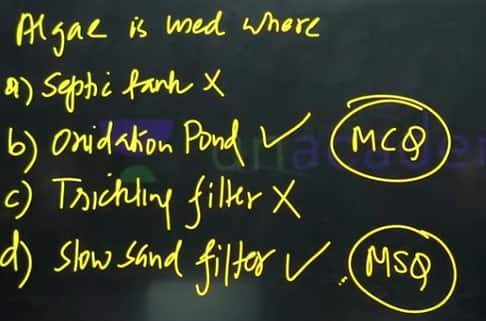 Algae is used where
a) Septic tank X
b) Oxidation Pond ✓ MCQ
c) Trickling filter X
d) Slow sand filter ✓ MSQ